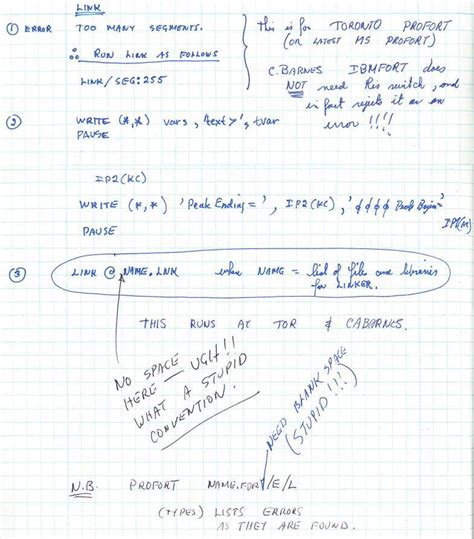 LINK
① ERROR TOO MANY SEGMENTS.
∴ RUN LINK AS FOLLOWS
LINK/SEG:255
this is for TORONTO PROFORT
(OR LATEST MS PROFORT)
C.BARNES IBMFORT does
NOT need this switch, and
in fact rejects it as an
error !!!!
② WRITE (*,*) vars, 'text>', tvar
PAUSE
IP2(KC)
WRITE (*,*) 'Peak Ending=', IP2(KC), '
PAUSE
③ LINK @NAME.LNK when NAME = list of files and libraries
for LINKER.
THIS RUNS AT TOR & CABARNES.
NO SPACE
HERE — UGH!!
WHAT A STUPID
CONVENTION.
NEED BLANK SPACE
(STUPID!!!)
N.B. PROFORT NAME.FOR /E/L
(TYPES) LISTS ERRORS
AS THEY ARE FOUND.